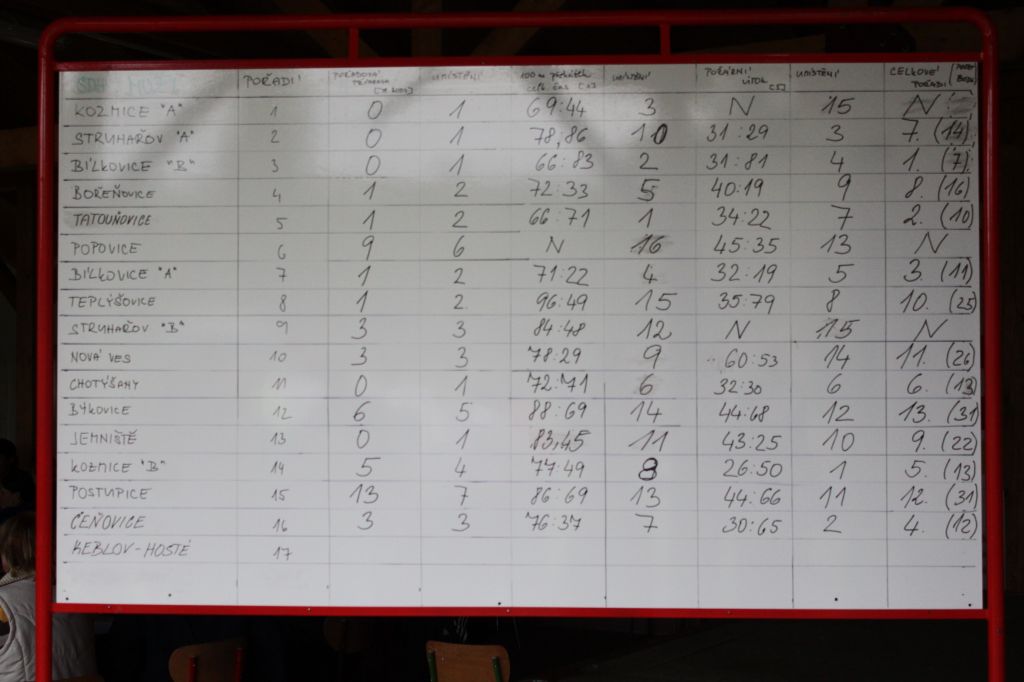 SDH MUŽI POŘADÍ POŘADOVÁ UMÍSTĚNÍ 100 m UMÍSTĚNÍ POŽÁRNÍ ÚTOK [S] UMÍSTĚNÍ CELKOVÉ POŘADÍ
KOZMICE "A" 1 0 1 69:44 3 N 15 N
STRUHAŘOV "A" 2 0 1 78,86 10 31:29 3 7. (14)
BÍLKOVICE "B" 3 0 1 66:83 2 31:81 4 1. (7)
BOŘEŇOVICE 4 1 2 72:33 5 40:19 9 8. (16)
TATOUŇOVICE 5 1 2 66:71 1 34:22 7 2. (10)
POPOVICE 6 9 6 N 16 45:35 13 N
BÍLKOVICE "A" 7 1 2 71:22 4 32:19 5 3. (11)
TEPLÝŠOVICE 8 1 2. 96:49 15 35:79 8 10. (25)
STRUHAŘOV "B" 9 3 3 84:48 12 N 15 N
NOVÁ VES 10 3 3 78:29 9 60:53 14 11. (26)
CHOTÝŠANY 11 0 1 72:71 6 32:30 6 6. (13)
BÝKOVICE 12 6 5 88:69 14 44:68 12 13. (31)
JEMNIŠTĚ 13 0 1 83,45 11 43:25 10 9. (22)
KOZMICE "B" 14 5 4 77:49 8 26:50 1 5. (13)
POSTUPICE 15 13 7 86:69 13 44:66 11 12. (31)
ČEŇOVICE 16 3 3 76:37 7 30:65 2 4. (12)
KEBLOV-HOSTÉ 17